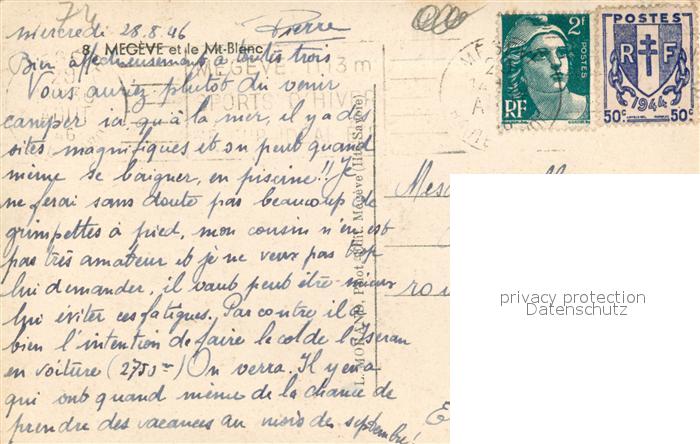 74
mercredi 28.8.46
Pierre
8. MEGÈVE et le Mt-Blanc
Bien affectueusement à toutes trois
MEGÈVE 1113 m
SPORTS D'HIVER
Vous auriez plutôt du venir
camper ici qu'à la mer, il y a des
sites magnifiques et on peut quand
même se baigner, en piscine!! Je
ne ferai sans doute pas beaucoup de
grimpettes à pied, mon cousin n'en est
pas très amateur et je ne veux pas trop
lui demander, il vaut peut être mieux
lui éviter ces fatigues. Par contre il a
bien l'intention de faire le col de l'Iseran
en voiture (2750 m) On verra. Il y en a
qui ont quand même de la chance de
prendre des vacances au mois de septembre!
L. MORAND, Phot. Edit. Megève (Hte Savoie)
2F
POSTES
RF
POSTES
R F
1944
50c 50c
Mes
rou
E
privacy protection
Datenschutz